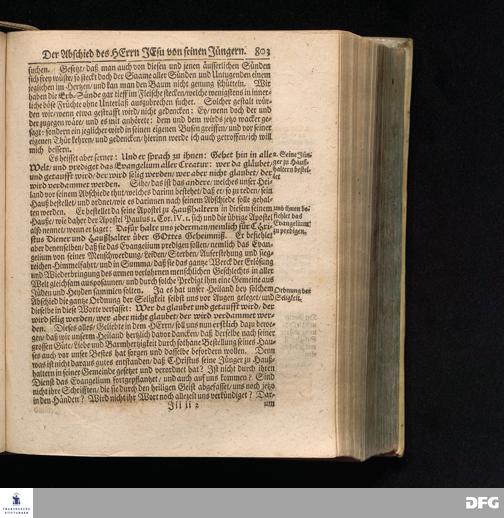 Der Abschied des HErrn JEsu von seinen Jüngern. 803
suchen. Gesetzt/ daß man auch von diesen und jenen äusserlichen Sünden
sich frey wüste/ so steckt doch der Saame aller Sünden und Untugenden einem
jeglichen im Hertzen/ und kan man den Baum nicht genung schütteln. Wir
haben die Erb-Sünde gar tieff im Fleische stecken/ welche wenigstens in inner-
liche böse Früchte ohne Unterlaß auszubrechen suchet. Solcher gestalt wür-
den wir/ wenn etwa gestrafft wird/ nicht gedencken: Ey/ wenn doch der und
der zugegen wäre/ und es mit anhörete: dem und dem würds jetzo wacker ge-
sagt: sondern ein jeglicher wird in seinen eigenen Busen greiffen/ und vor seiner
eigenen Thür kehren/ und gedencken/ hierinn werde ich auch getroffen/ ich will
mich bessern.
Es heisset aber ferner: Und er sprach zu ihnen: Gehet hin in alle
Welt/ und prediget das Evangelium aller Creatur: wer da gläubet/
und getaufft wird/ der wird selig werden/ wer aber nicht gläubet/ der
wird verdammet werden. Sihe/ das ist das andere/ welches unser Hei-
land vor seinem Abschiede thut/ welches darinn bestehet/ daß er/ so zu reden/ sein
Hauß bestellet/ und ordnet/ wie es darinnen nach seinem Abschiede solle gehal-
ten werden. Er bestellet da seine Apostel zu Haußhaltern in diesem seinem
Hauße/ wie daher der Apostel Paulus 1. Cor. IV. 1. sich und die übrige Apostel
also nennet/ wenn er saget: Dafür halte uns jederman/ nemlich für Chri-
stus Diener und Haußhalter über GOttes Geheimniß. Er befiehlet
aber denenselben/ daß sie das Evangelium predigen sollen/ nemlich das Evan-
gelium von seiner Menschwerdung/ Leiden/ Sterben/ Aufferstehung und sieg-
reichen Himmelfahrt/ und in Summa/ daß sie das gantze Werck der Erlösung
und Wiederbringung des armen verlohrnen menschlichen Geschlechts in aller
Welt gleichsam ausposaunen/ und durch solche Predigt ihm eine Gemeine aus
Jüden und Heyden sammlen sollen. Ja es hat unser Heiland bey solchem
Abschied die gantze Ordnung der Seligkeit selbst uns vor Augen geleget/ und
dieselbe in diese Worte verfasset: Wer da gläubet und getaufft wird/ der
wird selig werden/ wer aber nicht gläubet/ der wird verdammet wer-
den. Dieses alles/ Geliebte in dem HErrn/ soll uns nun erstlich dazu bewe-
gen/ daß wir unserm Heiland hertzlich davor dancken/ daß derselbe nach seiner
grossen Güte/ Liebe und Barmhertzigkeit durch sothane Bestellung seines Hau-
ses auch vor unser Bestes hat sorgen und dasselbe befordern wollen. Denn
was ist nicht daraus gutes entstanden/ daß Christus seine Jünger zu Hauß-
haltern in seiner Gemeinde gesetzet und verordnet hat? Ist nicht durch ihren
Dienst das Evangelium fortgepflantzet/ und auch auf uns kommen? Sind
nicht ihre Schrifften/ die sie durch den heiligen Geist abgefasset/ uns noch jetzo
in den Händen? Wird nicht ihr Wort noch allezeit uns verkündiget? Dar-
Jii ii 2
um
2. Seine Jün-
ger zu Hauß-
haltern bestel-
let
und ihnen be-
fiehlet das
Evangelium
zu predigen.
Ordnung der
Seligkeit.
FRANCKESCHE
STIFTUNGEN
DFG